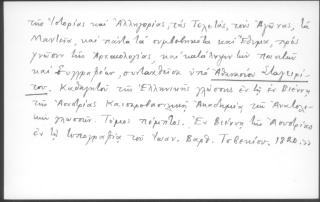 τῆς Ἱστορίας καὶ Ἀλληγορίας, τὰς Τελετάς, τοὺς Ἀγῶνας, τὰ
Μαντεῖα, καὶ πάντα τὰ συμβεβηκότα καὶ ἔθιμα, πρὸς
γνῶσιν τῆς Ἀρχαιολογίας, καὶ κατάληψιν τῶν ποιητῶν
καὶ Συγγραφέων, συνταχθεῖσα ὑπὸ Ἀθανασίου Σταγειρί-
του. Καθηγητοῦ τῆς Ἑλληνικῆς γλώσσης ἐν τῇ ἐν Βιέννῃ
τῆς Αουστρίας Καισαροβασιλικῇ Ἀκαδημίᾳ τῶν Ἀνατολι-
κῶν γλωσσῶν. Τόμος πέμπτος. Ἐν Βιέννῃ τῆς Αουστρίας
ἐν τῇ τυπογραφίᾳ τοῦ Ἰωαν. Βαρθ. Τσβεκίου. 1820.»